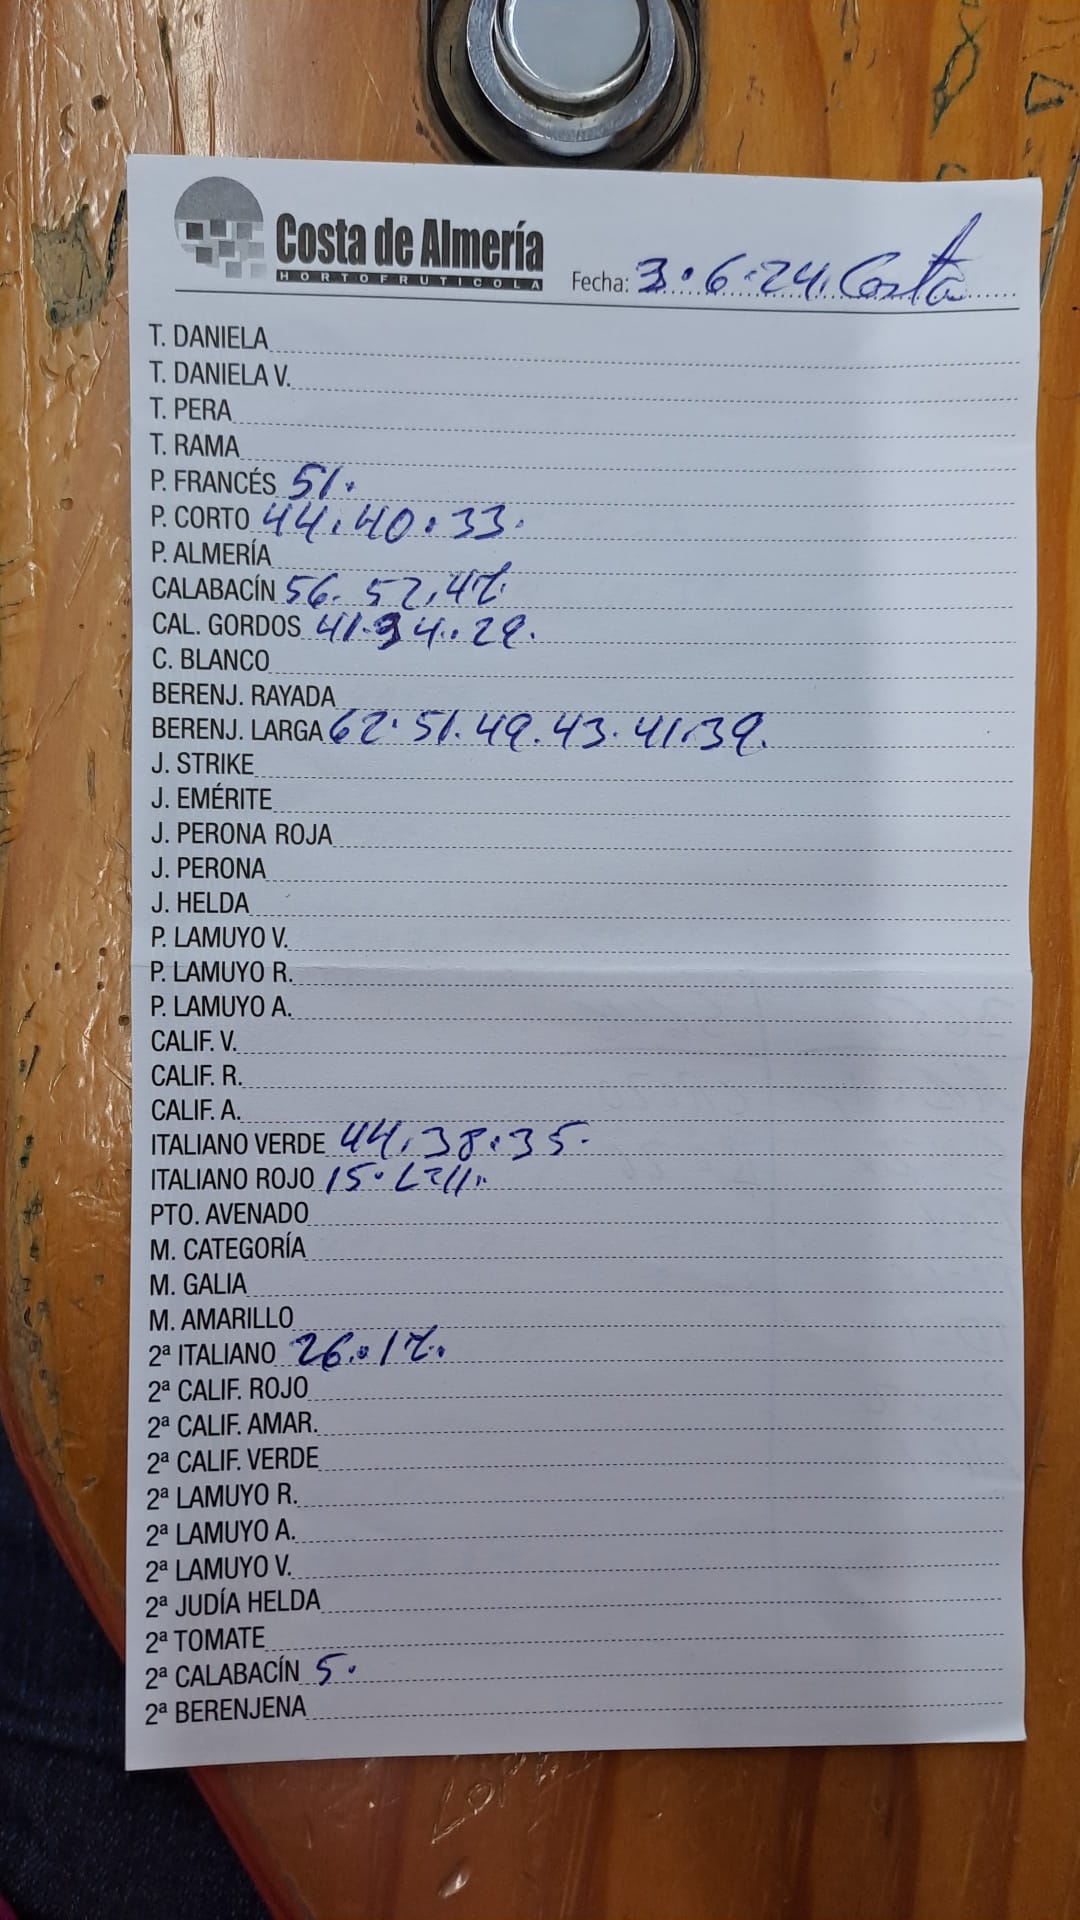 Costa de Almería
HORTOFRUTICOLA
Fecha: 3.6.24. Costa
T. DANIELA
T. DANIELA V.
T. PERA
T. RAMA
P. FRANCÉS 51.
P. CORTO 44.40.33.
P. ALMERÍA
CALABACÍN 56. 52.47.
CAL. GORDOS 41.34.29.
C. BLANCO
BERENJ. RAYADA
BERENJ. LARGA 62.51.49.43.41.39.
J. STRIKE
J. EMÉRITE
J. PERONA ROJA
J. PERONA
J. HELDA
P. LAMUYO V.
P. LAMUYO R.
P. LAMUYO A.
CALIF. V.
CALIF. R.
CALIF. A.
ITALIANO VERDE 44.38.35.
ITALIANO ROJO 15.
PTO. AVENADO
M. CATEGORÍA
M. GALIA
M. AMARILLO
2ª ITALIANO 26.17.
2ª CALIF. ROJO
2ª CALIF. AMAR.
2ª CALIF. VERDE
2ª LAMUYO R.
2ª LAMUYO A.
2ª LAMUYO V.
2ª JUDÍA HELDA
2ª TOMATE
2ª CALABACÍN 5.
2ª BERENJENA